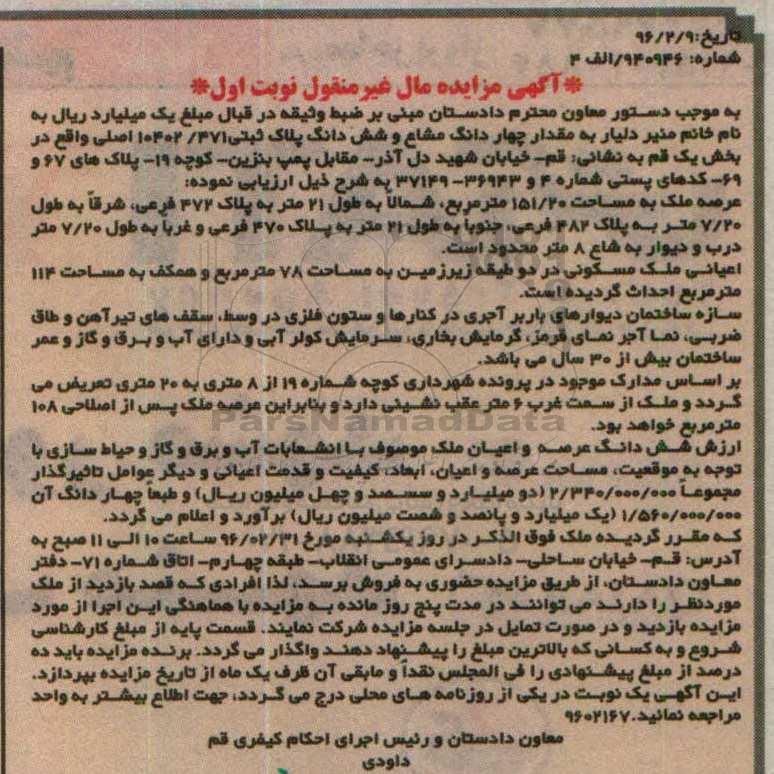 تاریخ:۹۶/۲/۹
شماره: ۹۴۰۹۴۶/الف ۴
*آگهی مزایده مال غیرمنقول نوبت اول*
به موجب دستور معاون محترم دادستان مبنی بر ضبط وثیقه در قبال مبلغ یک میلیارد ریال به
نام خانم منیر دلیار به مقدار چهار دانگ مشاع و شش دانگ پلاک ثبتی۴۷۱/ ۱۰۴۰۲ اصلی واقع در
بخش یک قم به نشانی: قم- خیابان شهید دل آذر- مقابل پمپ بنزین- کوچه ۱۹- پلاک های ۶۷ و
۶۹- کدهای پستی شماره ۴ و ۳۶۹۴۳- ۳۷۱۴۹ به شرح ذیل ارزیابی نموده:
عرصه ملک به مساحت ۱۵۱/۲۰ مترمربع، شمالاً به طول ۲۱ متر به پلاک ۴۷۲ فرعی، شرقاً به طول
۷/۲۰ متر به پلاک ۴۸۲ فرعی، جنوباً به طول ۲۱ متر به پلاک ۴۷۰ فرعی و غرباً به طول ۷/۲۰ متر
درب و دیوار به شاع ۸ متر محدود است.
اعیانی ملک مسکونی در دو طبقه زیرزمین به مساحت ۷۸ مترمربع و همکف به مساحت ۱۱۴
مترمربع احداث گردیده است.
سازه ساختمان دیوارهای باربر آجری در کنارها و ستون فلزی در وسط، سقف های تیرآهن و طاق
ضربی، نما آجر نمای قرمز، گرمایش بخاری، سرمایش کولر آبی و دارای آب و برق و گاز و عمر
ساختمان بیش از ۳۰ سال می باشد.
بر اساس مدارک موجود در پرونده شهرداری کوچه شماره ۱۹ از ۸ متری به ۲۰ متری تعریض می
گردد و ملک از سمت غرب ۶ متر عقب نشینی دارد و بنابراین عرصه ملک پس از اصلاحی ۱۰۸
مترمربع خواهد بود.
ParsNamadData
ارزش شش دانگ عرصه و اعیان ملک موصوف با انشعابات آب و برق و گاز و حیاط سازی با
توجه به موقعیت، مساحت عرصه و اعیان، ابعاد، کیفیت و قدمت اعیانی و دیگر عوامل تاثیرگذار
مجموعاً ۲/۳۴۰/۰۰۰/۰۰۰ (دو میلیارد و سیصد و چهل میلیون ریال) و طبعاً چهار دانگ آن
۱/۵۶۰/۰۰۰/۰۰۰ (یک میلیارد و پانصد و شصت میلیون ریال) برآورد و اعلام می گردد.
که مقرر گردیده ملک فوق الذکر در روز یکشنبه مورخ ۹۶/۰۲/۳۱ ساعت ۱۰ الی ۱۱ صبح به
آدرس: قم- خیابان ساحلی- دادسرای عمومی انقلاب- طبقه چهارم- اتاق شماره ۷۱- دفتر
معاون دادستان، از طریق مزایده حضوری به فروش برسد، لذا افرادی که قصد بازدید از ملک
موردنظر را دارند می توانند در مدت پنج روز مانده به مزایده با هماهنگی این اجرا از مورد
مزایده بازدید و در صورت تمایل در جلسه مزایده شرکت نمایند. قسمت پایه از مبلغ کارشناسی
شروع و به کسانی که بالاترین مبلغ را پیشنهاد دهند واگذار می گردد. برنده مزایده باید ده
درصد از مبلغ پیشنهادی را فی المجلس نقداً و مابقی آن ظرف یک ماه از تاریخ مزایده بپردازد.
این آگهی یک نوبت در یکی از روزنامه های محلی درج می گردد، جهت اطلاع بیشتر به واحد
مراجعه نمائید.۹۶۰۲۱۶۷
معاون دادستان و رئیس اجرای احکام کیفری قم
داودی